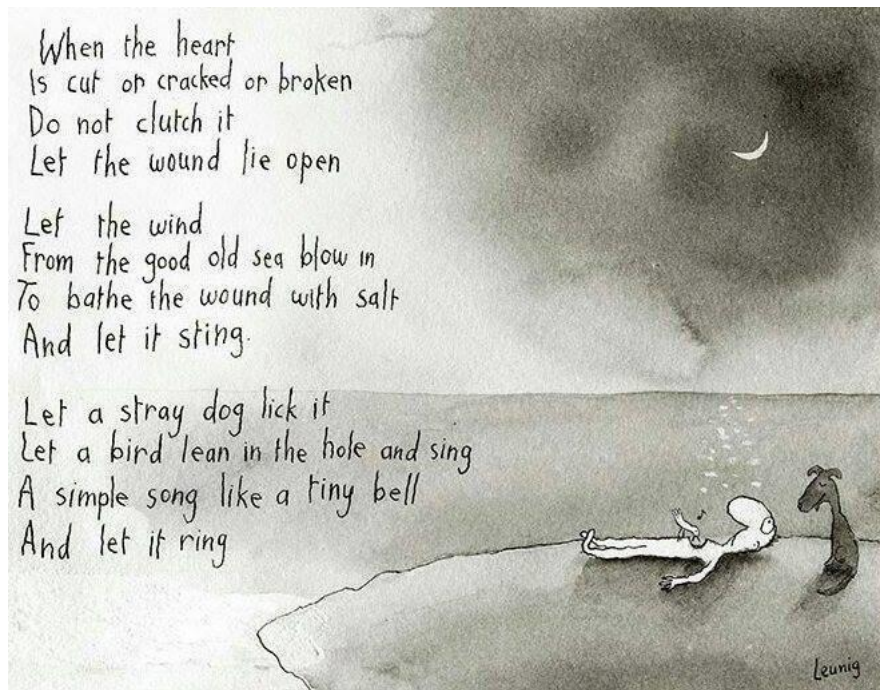 When the heart
Is cut or cracked or broken
Do not clutch it
Let the wound lie open
Let the wind
From the good old sea blow in
To bathe the wound with salt
And let it sting.
Let a stray dog lick it
Let a bird lean in the hole and sing
A simple song like a tiny bell
And let it ring
Leunig